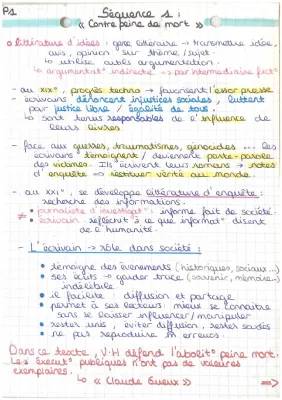 P1
Séquence 1 :
« Contre peine de mort »
littérature d'idées : gpre littéraire → transmettre idée,
avis, opinion sur thème/sujet.
↳ utilise outils argumentation.
↳ argumentat° indirecte → par intermédiaire fict°
- au XIXe, progrès techno → favorisent l'essor presse
écrivains dénoncent injustices sociales, luttent
pour justice libre / égalité de tous.
↳ sont tenus responsables de l'influence de
leurs livres
- face aux guerres, traumatismes, génocides ... les
écrivains témoignent / deviennent porte-parole
des victimes. Ils écrivent leurs romans → notes
d'enquête → restituer vérité au monde.
- au XXIe, se développe littérature d'enquête :
recherche des informations.
≠ journaliste d'investigat° : informe fait de société.
écrivain réfléchit à ce que informat° disent
de l'humanité.
- L'écrivain → rôle dans société :
• témoigne des évènements (historiques, sociaux...)
• ses écrits → garder trace (souvenir, mémoire...)
indélébile
• il facilite : diffusion et partage
• permet à ses lecteurs : mieux se connaître
sans se laisser influencer / manipuler
• rester unis, éviter diffusion, rester soudés
• ne pas reproduire m erreurs.
Dans ce texte, V.H défend l'abolit° peine mort.
Les execut° publiques n'ont pas de valeures
exemplaires.
↳ « Claude Gueux » ⇒